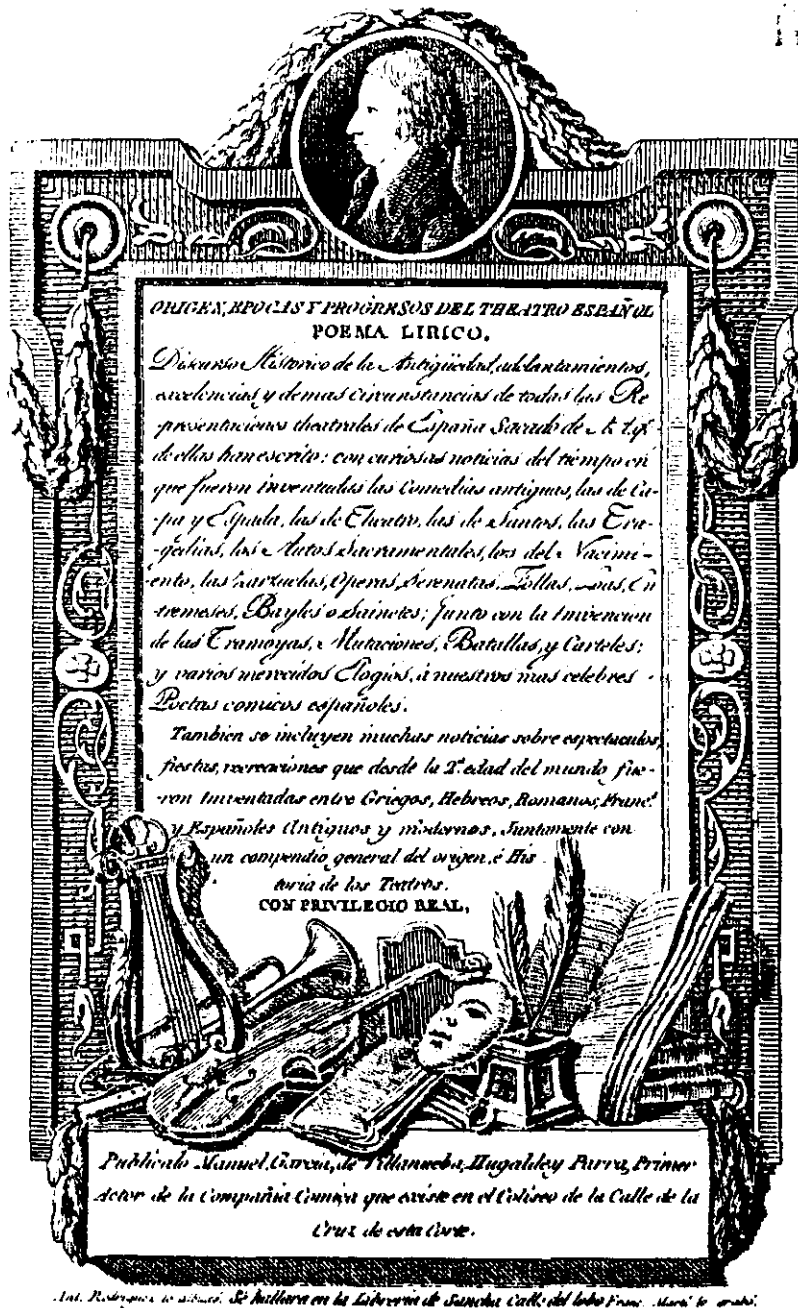 ORIGEN, EPOCAS Y PROGRESOS DEL THEATRO ESPAÑOL
POEMA LIRICO.
Discurso Historico de la Antigüedad, adelantamientos,
excelencias y demas circunstancias de todas las Re
presentaciones theatrales de España Sacado de
de ellas han escrito: con curiosas noticias del tiempo en
que fueron inventadas las Comedias antiguas, las de Ca-
pa y Espada, las de Theatro, las de Santos, las Tra-
gedias, los Autos Sacramentales, los del Nacimi-
ento, las Zarzuelas, Operas, Serenatas, Follas, Loas, En
tremeses, Bayles o Sainetes; junto con la Imvencion
de las Tramoyas, Mutaciones, Batallas, y Carteles;
y varios merecidos Elogios, á nuestros mas celebres -
Poetas comicos españoles.
Tambien se incluyen muchas noticias sobre espectaculos,
fiestas, recreaciones que desde la 2ª edad del mundo fue-
ron Imventadas entre Griegos, Hebreos, Romanos, Francs.
y Españoles Antiguos y modernos, Juntamente con
un compendio general del origen, é His
toria de los Teatros.
CON PRIVILEGIO REAL,
Publicalo Manuel Garcia, de Villanueba, Hugalde y Parra, Primer
Actor de la Compañia Comica que existe en el Coliseo de la Calle de la
Cruz de esta Corte.
Ant. Rodriguez lo dibuxó. Se hallara en la Libreria de Sancha Calle del lobo Franc. Martí lo grabó.